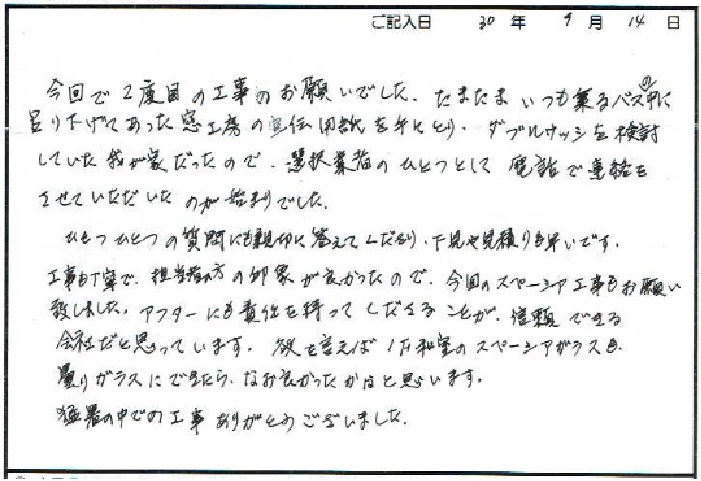 ご記入日 30 年 9 月 14 日
今回で2度目の工事のお願いでした。たまたまいつも乗るバスの中に
吊り下げてあった窓工房の宣伝用紙を手にとり、ダブルサッシを検討
していた我が家だったので、選択業者のひとつとして電話で連絡を
させていただいたのが始まりでした。
ひとつひとつの質問にも親切に答えてくださり、下見や見積りも早いです。
工事も丁寧で、担当者の方の印象が良かったので、今回のスペーシア工事もお願い
致しました。アフターにも責任を持ってくださることが、信頼できる
会社だと思っています。欲を言えば1F和室のスペーシアガラスも、
曇りガラスにできたら、なお良かったかなと思います。
猛暑の中での工事ありがとうございました。